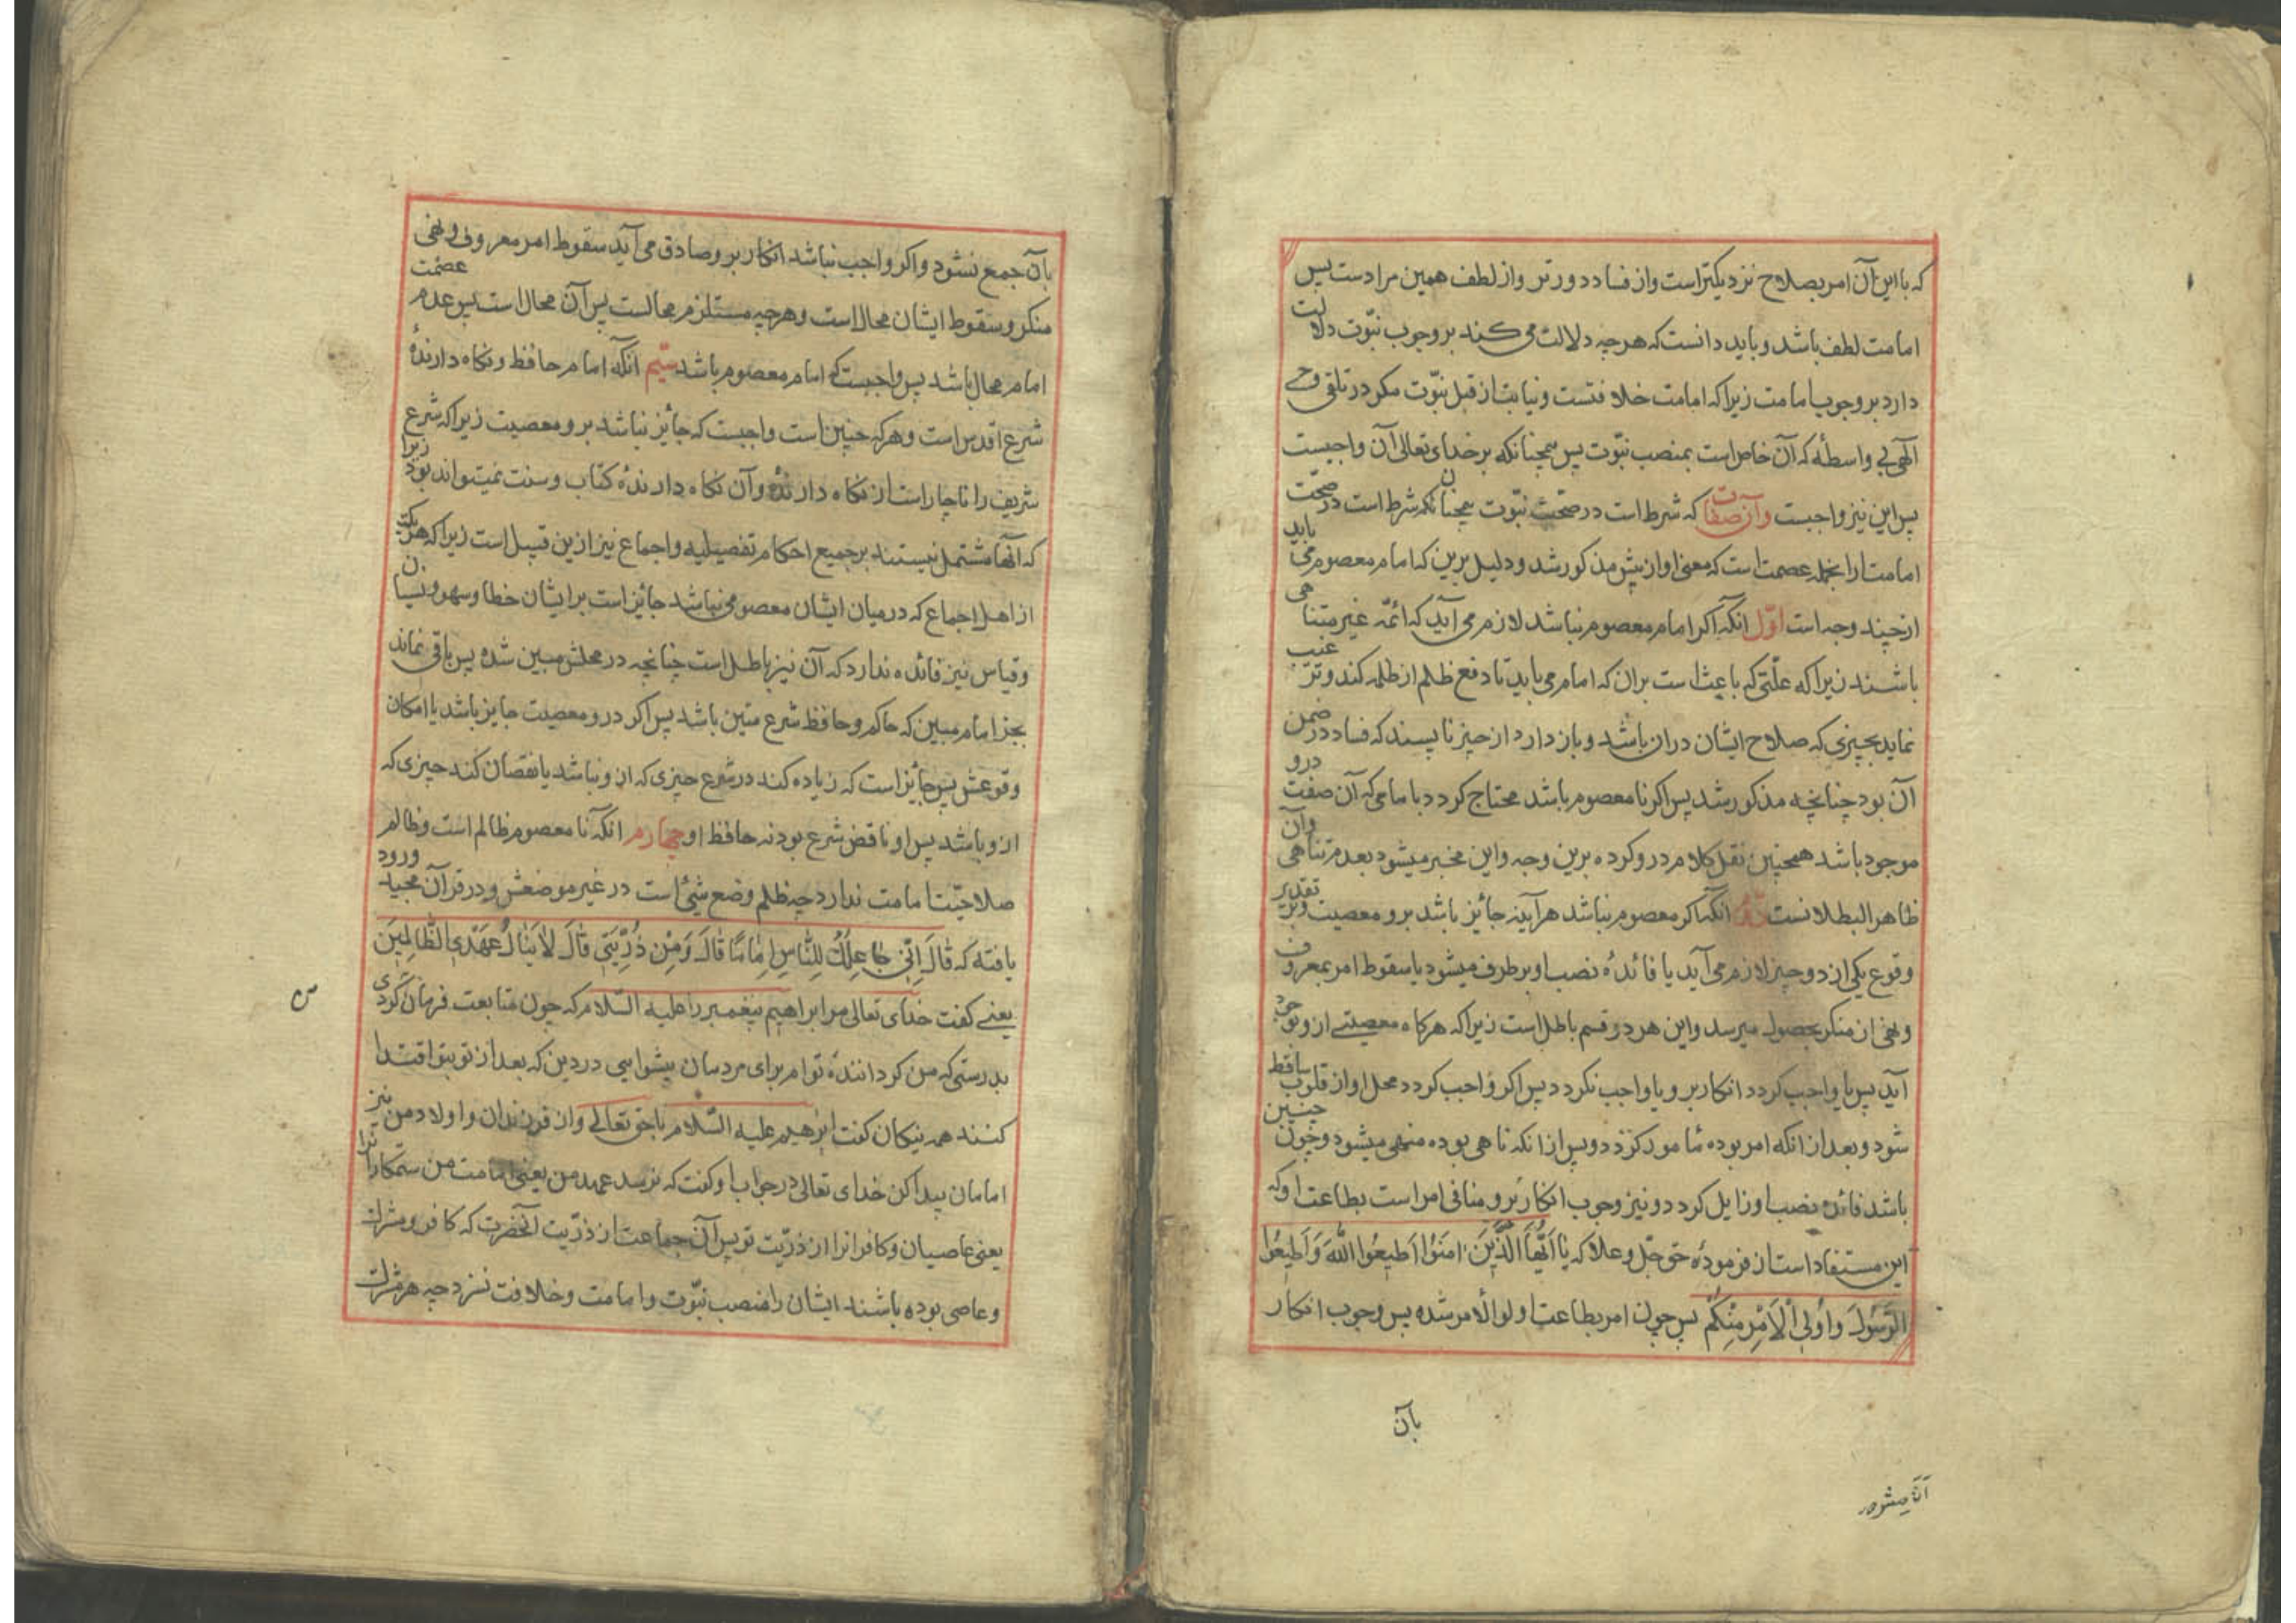 که با این آن امر بصلاح نزدیکتر است و از فساد دورتر و از لطف همین مرادست پس
امامت لطف باشد و باید دانست که هرچه دلالت می کند بر وجوب نبوّت دلالت
دارد بر وجوب امامت زیرا که امامت خلافتست و نیابت از قبل نبوّت مکر در تلقی وحی
آلهی بی واسطه که آن خاص است بمنصب نبوّت پس همچنانکه بر خدای تعالی آن واجبست
پس این نیز واجبست و آن صفات که شرط است در صحّت نبوّت همچنانکه شرط است در صحّت
امامت از انجمله عصمت است که معنی او از پیش مذکور شد و دلیل برین که امام معصوم می باید
از چند وجه است اوّل انکه اکر امام معصوم نباشد لازم می آید که ائمّه غیر متناهی
باشند زیرا که علّتی که باعث است بران که امام می باید تا دفع ظلم از ظلمه کند و ترغیب
نماید بچیزی که صلاح ایشان دران باشد و باز دارد از چیز ناپسند که فساد در ضمن
آن بود چنانچه مذکور شد پس اکر نامعصوم باشد محتاج کردد بامامی که آن صفت درو
موجود باشد همچنین نقل کلام درو کرده برین وجه و این مخبر میشود بعدم تناهی وآن
ظاهر البطلانست انکه اکر معصوم نباشد هرآینه جائز باشد برو معصیت و بر تقدیر
وقوع یکی از دو چیز لازم می آید یا فائدهٔ نصب او بر طرف میشود یا سقوط امر بمعروف
و نهی از منکر بحصول میرسد و این هر دو قسم باطل است زیرا که هرکاه معصیتی ازو بوجود
آید پس یا واجب کردد انکار برو یا واجب نکردد پس اکر واجب کردد محل او از قلوب ساقط
شود و بعد از انکه امر بوده مامور کردد و پس از انکه ناهی بوده منهی میشود و چون چنین
باشد فائدهٔ نصب او زایل کردد و نیز وجوب انکار برو منافی امر است بطاعت او که
این مستفاد است از فرمودهٔ حق جلّ و علا که یٰا اَیُّهَا الَّذینَ اٰمَنُوا اَطیعُوا اللّٰهَ وَاَطیعُوا
الرَّسُولَ وَاُولِی الْاَمْرِ مِنْکُمْ پس چون امر بطاعت اولو الامر شده پس وجوب انکار
بآن
بآن جمع نشود و اکر واجب نباشد انکار برو صادق می آید سقوط امر معروف و نهی
منکر و سقوط ایشان محال است و هرچه مستلزم محالست پس آن محال است پس عدم عصمت
امام محال باشد پس واجبست که امام معصوم باشد سیّم انکه امام حافظ و نکاه دارندهٔ
شرع اقدس است و هرکه چنین است واجبست که جائز نباشد برو معصیت زیرا که شرع
شریف را ناچار است از نکاه دارندهٔ و آن نکاه دارندهٔ کتاب و سنت نمیتواند بود زیرا
که آنها مشتمل نیستند بر جمیع احکام تفصیلیه و اجماع نیز ازین قبیل است زیرا که هر یک
از اهل اجماع که در میان ایشان معصومی نباشد جائز است بر ایشان خطا و سهو و نسیان
و قیاس نیز فائده ندارد که آن نیز باطل است چنانچه در محلش مبین شده پس باقی نماند
بجز امام مبین که حاکم و حافظ شرع متین باشد پس اکر درو معصیت جایز باشد با امکان
وقوعش پس جائز است که زیاده کند در شرع چیزی که ازو نباشد یا نقصان کند چیزی که
ازو باشد پس او ناقض شرع بود نه حافظ او چهارم انکه نامعصوم ظالم است و ظالم
صلاحیّت امامت ندارد چه ظلم وضع شئ است در غیر موضعش و در قرآن مجید ورود
یافته که قٰالَ اِنّی جٰاعِلُکَ لِلنّٰاسِ اِمٰامًا قٰالَ وَمِنْ ذُرِّیَّتی قٰالَ لٰا یَنٰالُ عَهْدِی الظّٰالِمینَ
یعنی کفت خدای تعالی مر ابراهیم پیغمبر را علیه السّلام که چون متابعت فرمان کردی
بدرستی که من کردانندهٔ توام برای مردمان پیشوایی در دین که بعد از تو بتو اقتدا
کنند همه نیکان کفت ابرهیم علیه السّلام با حق تعالی و از فرزندان و اولاد من نیز
امامان پیدا کن خدای تعالی در جواب او کفت که نرسد عهد من یعنی امامت من ستمکارانرا
یعنی عاصیان و کافرانرا از ذرّیت تو پس آن جماعت از ذرّیت آنحضرت که کافر و مشرک
و عاصی بوده باشند ایشان را منصب نبوّت و امامت و خلافت نسزد چه هر مشرک